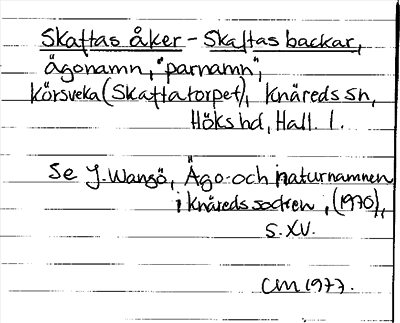 Skaftas åker - Skaftas backar,
ägonamn, "parnamn",
Körsveka (Skaftatorpet), Knäreds sn,
Höks hd, Hall. l.
Se J. Wansö, Ägo- och naturnamnen
i Knäreds socken, (1970),
s. XV.
CM 1977.